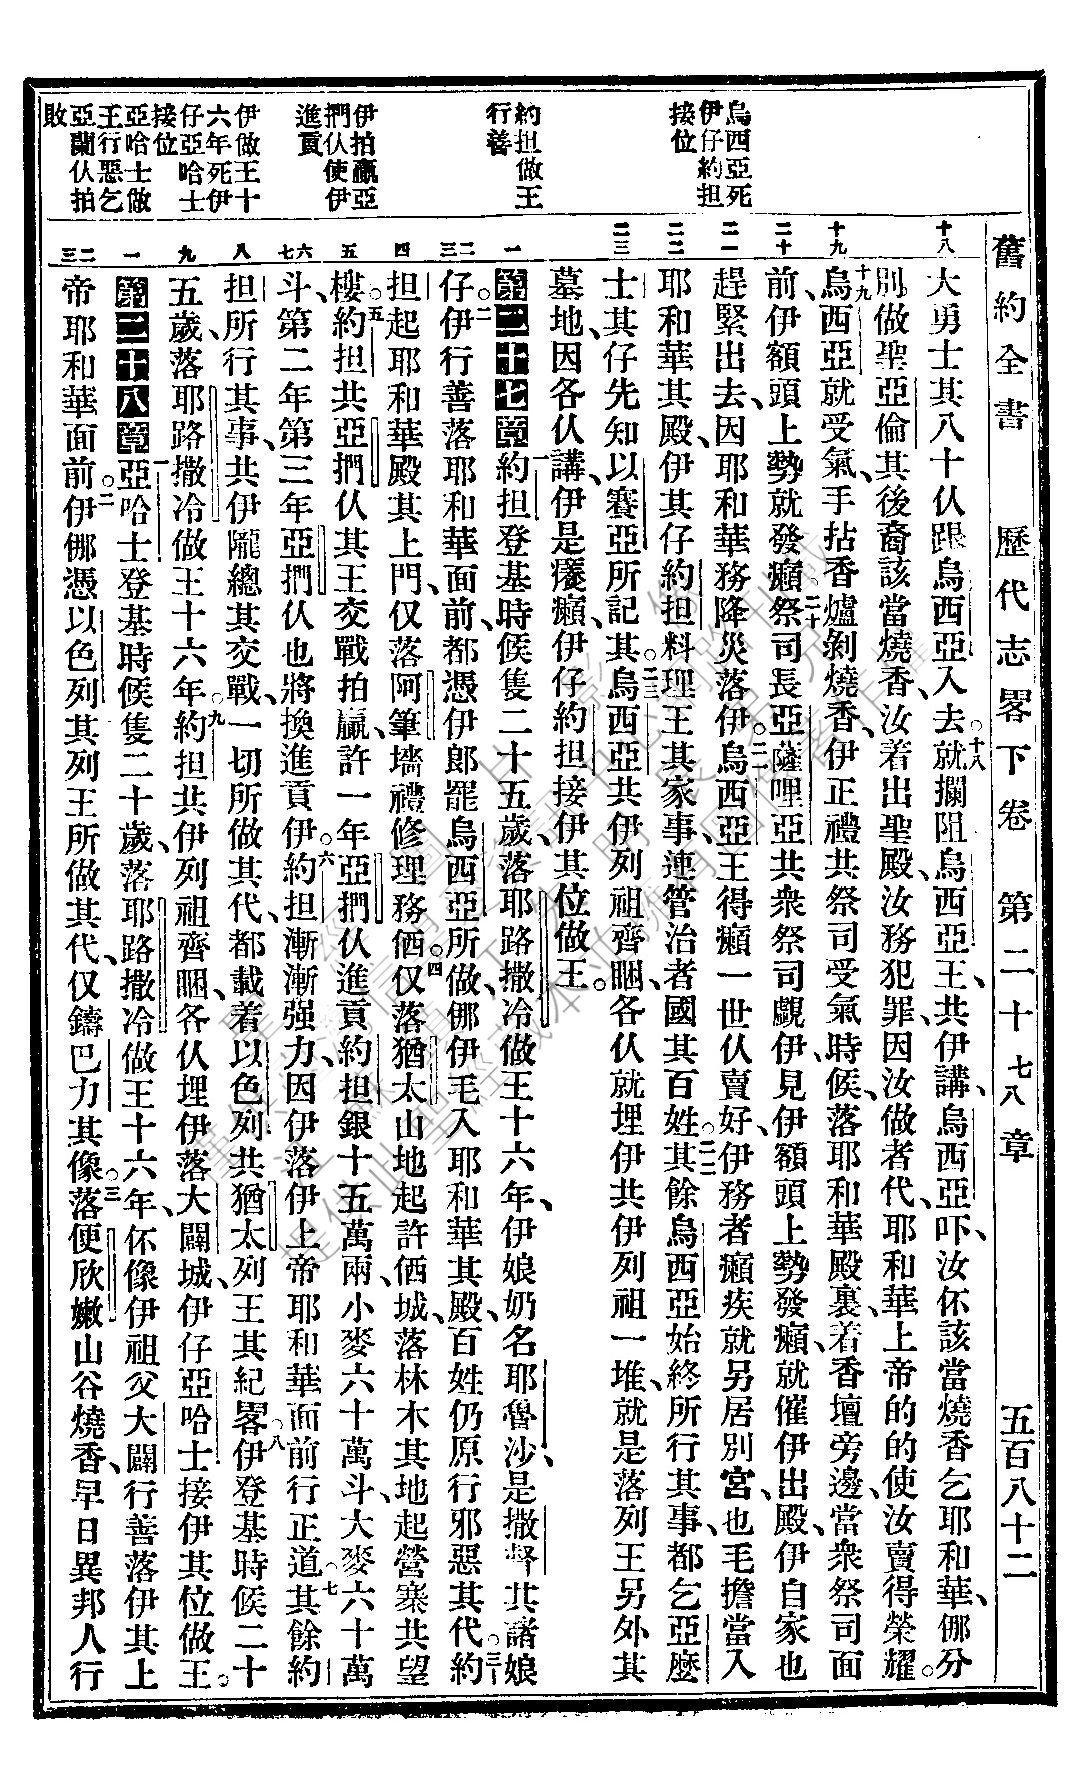 舊約全書 歷代志畧下卷 第二十七八章 五百八十二
烏西亞死
伊仔約担
接位
約担做王
行善
伊拍贏亞
捫仈使伊
進貢
伊做王十
六年死伊
仔亞哈士
接位
亞哈士做
王行惡乞
亞蘭仈拍
敗
十八 十九 二十 二一 二二 二三 一 二三 四 五 六七 八 九 一 二三
大勇士其八十仈跟烏西亞入去。十八就攔阻烏西亞王、共伊講、烏西亞吓、汝伓該當燒香乞耶和華、㑚分
別做聖亞倫其後裔該當燒香、汝着出聖殿、汝務犯罪因汝做者代、耶和華上帝的的使汝賣得榮耀。
十九烏西亞就受氣、手拈香爐剝燒香、伊正禮共祭司受氣時候、落耶和華殿裏、着香壇旁邊、當衆祭司面
前、伊額頭上勢就發癩。二十祭司長亞薩哩亞共衆祭司覷伊、見伊額頭上勢發癩、就催伊出殿、伊自家也
趕緊出去、因耶和華務降災落伊。二一烏西亞王得癩一世仈賣好、伊務者癩疾就另居別宮、也毛擔當入
耶和華其殿、伊其仔約担料理王其家事、連管治者國其百姓。二二其餘烏西亞始終所行其事、都乞亞麽
士其仔先知以賽亞所記其。二三烏西亞共伊列祖齊睏、各仈就埋伊共伊列祖一堆、就是落列王另外其
墓地、因各仈講、伊是癢癩、伊仔約担接伊其位做王。
第二十七章 一約担登基時候隻二十五歲、落耶路撒冷做王十六年、伊娘奶名耶魯沙、是撒督其諸娘
仔。二伊行善落耶和華面前、都憑伊郞罷烏西亞所做、㑚伊毛入耶和華其殿、百姓仍原行邪惡其代。三約
担起耶和華殿其上門、仅落阿筆墻禮修理務価。四仅落猶太山地起許価城、落林木其地起營寨共望
樓。五約担共亞捫仈其王交戰拍贏、許一年亞捫仈進貢約担銀十五萬兩、小麥六十萬斗、大麥六十萬
斗、第二年第三年亞捫仈也將換進貢伊。六約担漸漸强力、因伊落伊上帝耶和華面前行正道。七其餘約
担所行其事、共伊隴總其交戰、一切所做其代、都載着以色列共猶太列王其紀畧。八伊登基時候二十
五歲、落耶路撒冷做王十六年。九約担共伊列祖齊睏、各仈埋伊落大闢城、伊仔亞哈士接伊其位做王。
第二十八章 一亞哈士登基時候隻二十歲、落耶路撒冷做王十六年、伓像伊祖父大闢行善落伊其上
帝耶和華面前。二伊㑚憑以色列其列王所做其代、仅鑄巴力其像。三落便欣嫩山谷燒香、早日異邦人行